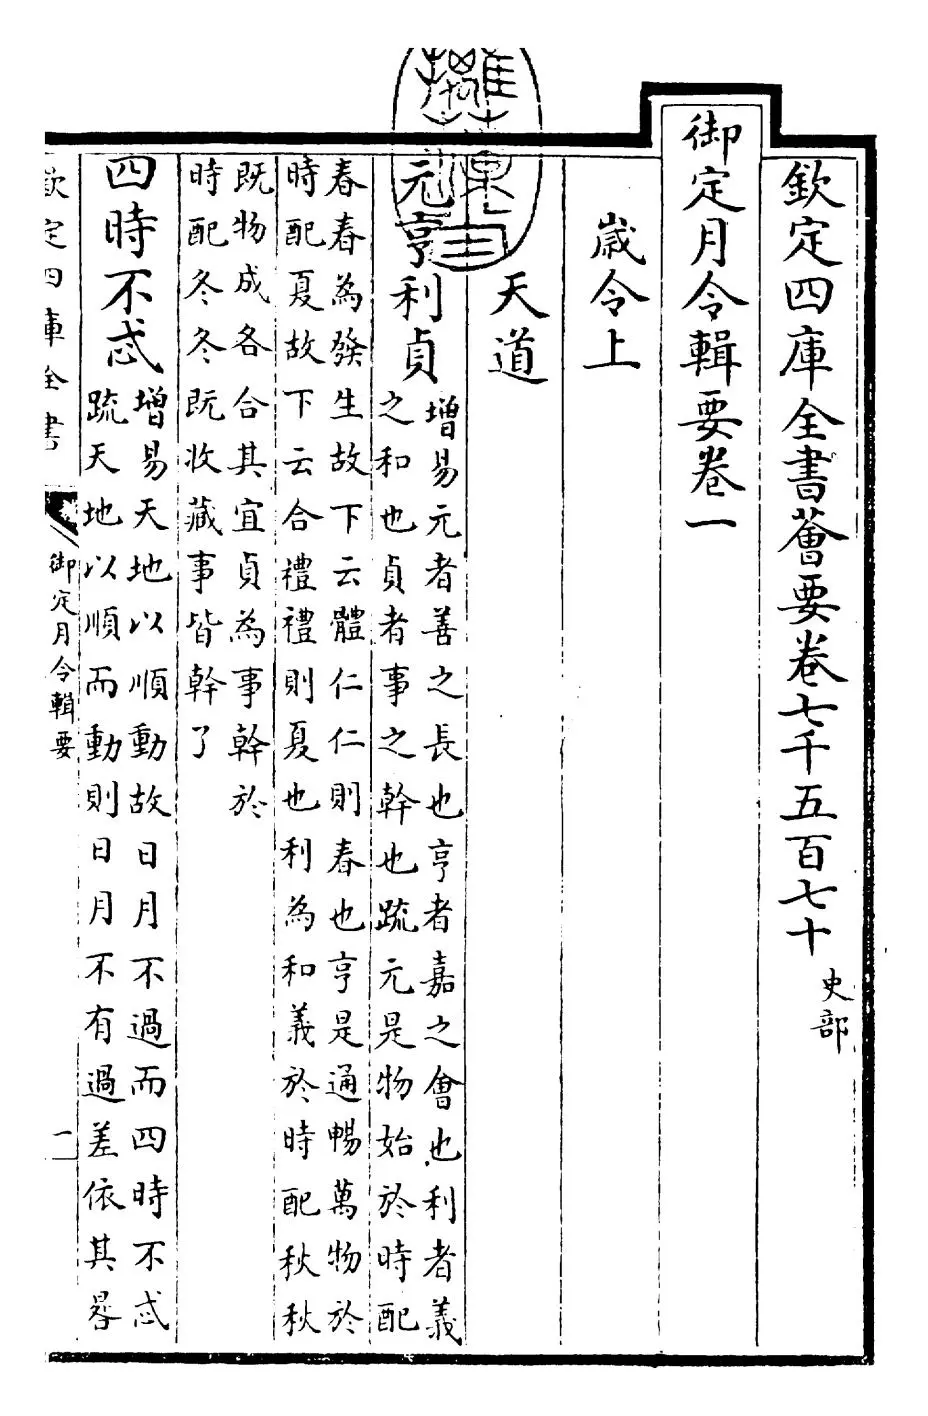 欽定四庫全書薈要卷七千五百七十 史部
御定月令輯要卷一
歲令上
天道
元亨利貞 增易元者善之長也亨者嘉之會也利者義
之和也貞者事之幹也疏元是物始於時配
春春為發生故下云體仁仁則春也亨是通暢萬物於
時配夏故下云合禮禮則夏也利為和義於時配秋秋
既物成各合其宜貞為事幹於
時配冬冬既收藏事皆幹了
四時不忒 增易天地以順動故日月不過而四時不忒
疏天地以順而動則日月不有過差依其晷
欽定四庫全書
御定月令輯要
一